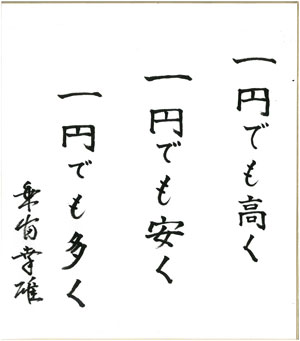 一円でも高く
一円でも安く
一円でも多く
乗富幸雄